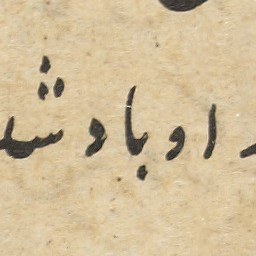 او بادشا